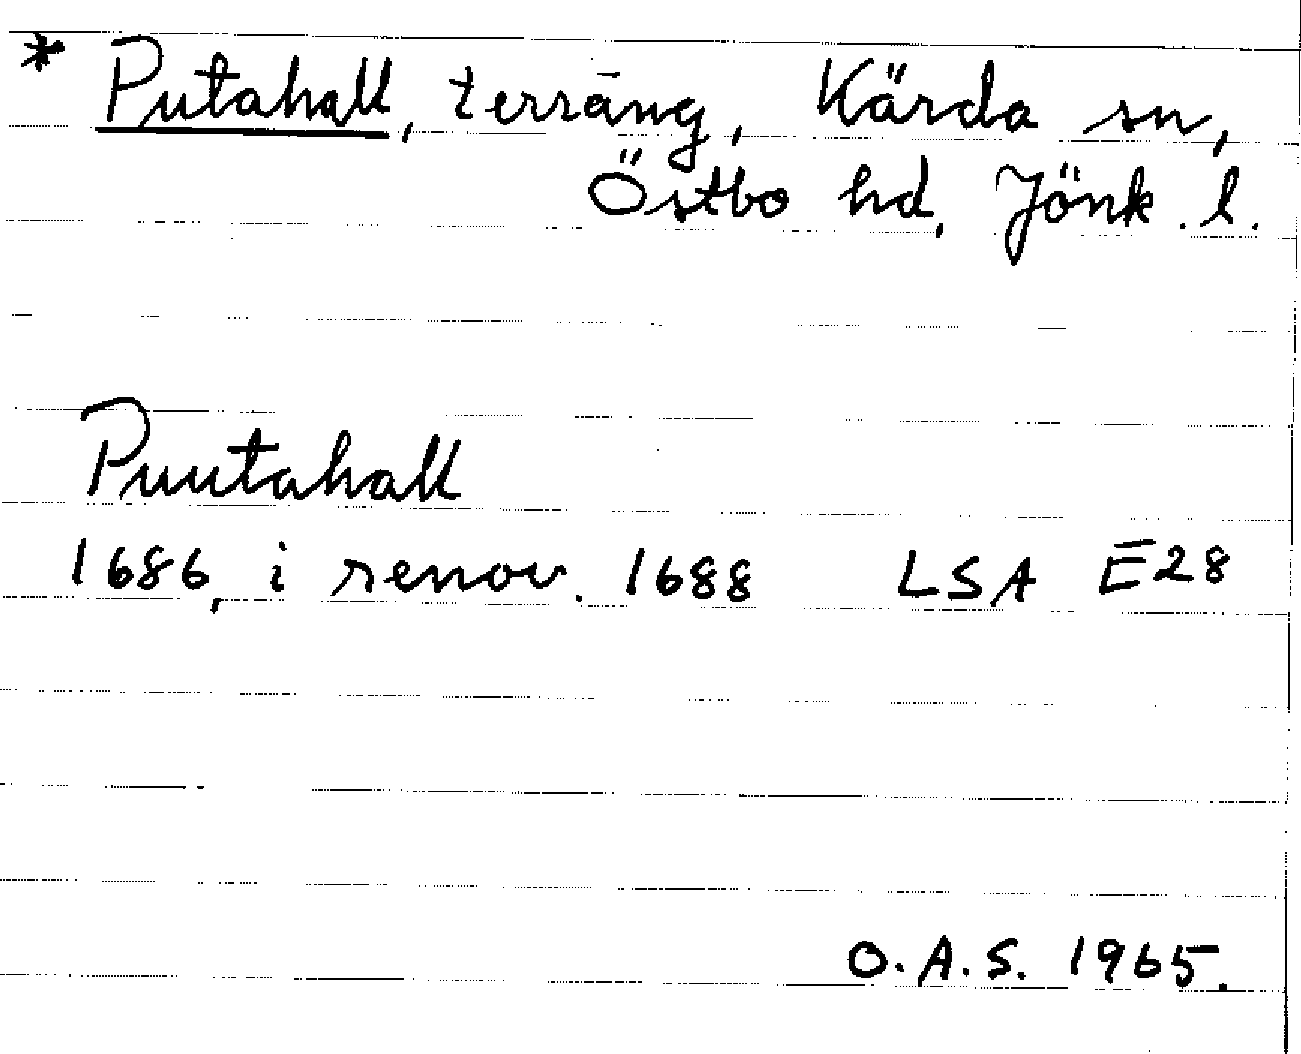 * Putahall, terräng, Kärda sn,
Östbo hd, Jönk. l.
Puutahall
1686, i renov. 1688 LSA E28
O.A.S. 1965.